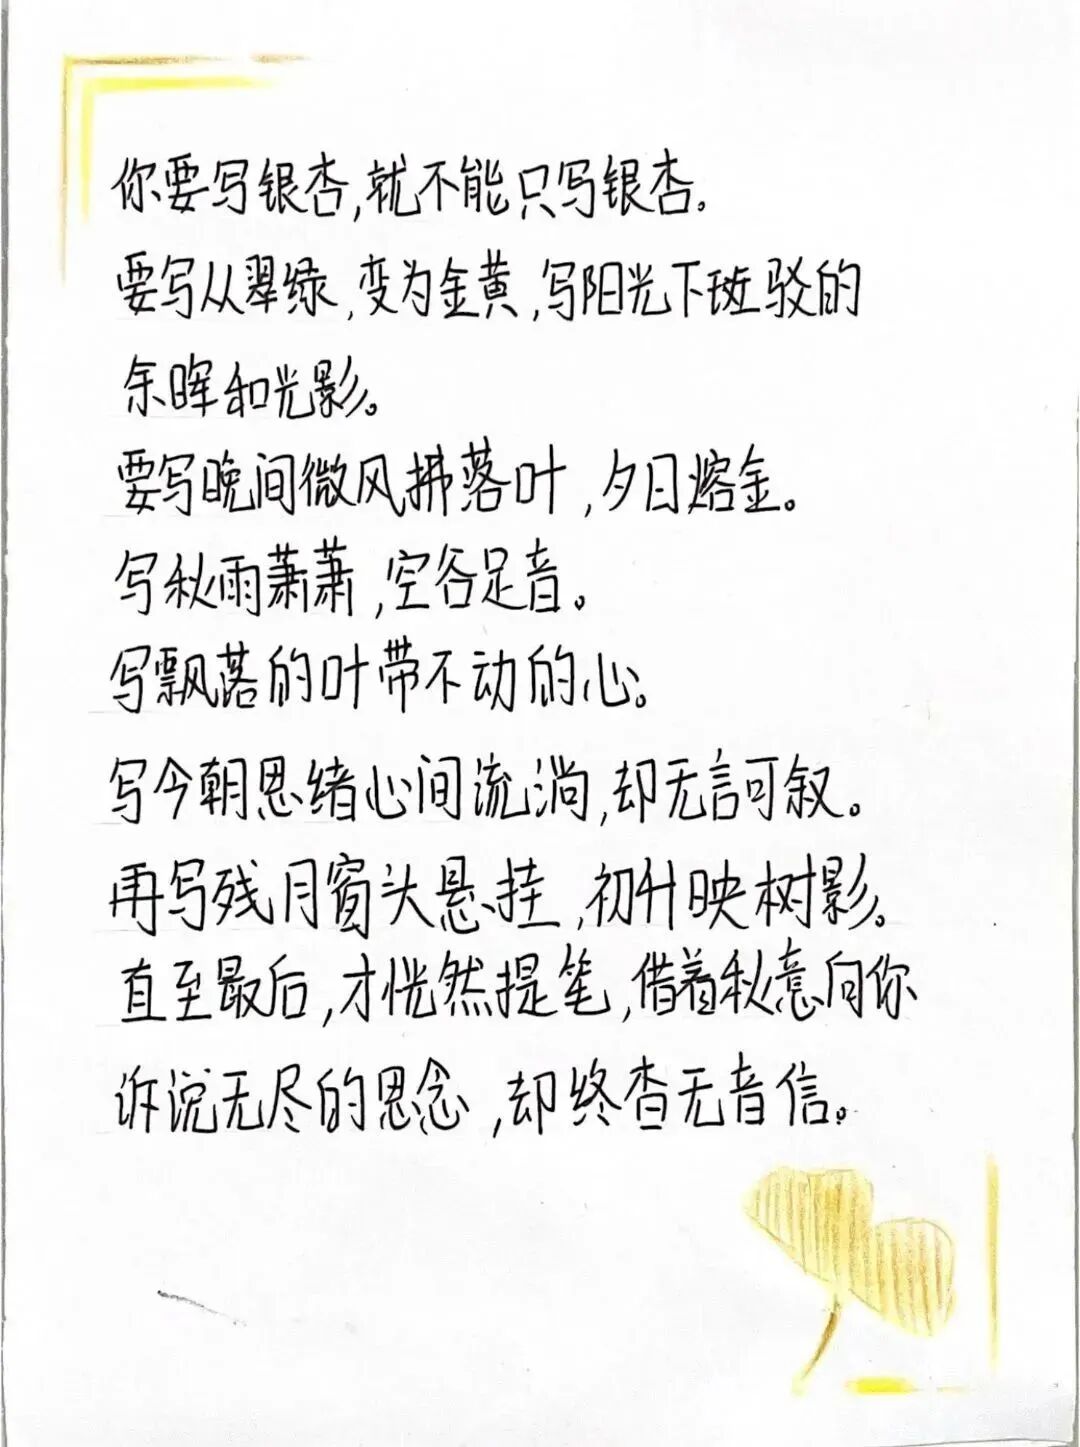 你要写银杏,就不能只写银杏。
要写从翠绿,变为金黄,写阳光下斑驳的
余晖和光影。
要写晚间微风拂落叶,夕日熔金。
写秋雨萧萧,空谷足音。
写飘落的叶带不动的心。
写今朝思绪心间流淌,却无言可叙。
再写残月窗头悬挂,初升映树影。
直至最后,才恍然提笔,借着秋意向你
诉说无尽的思念,却终杳无音信。